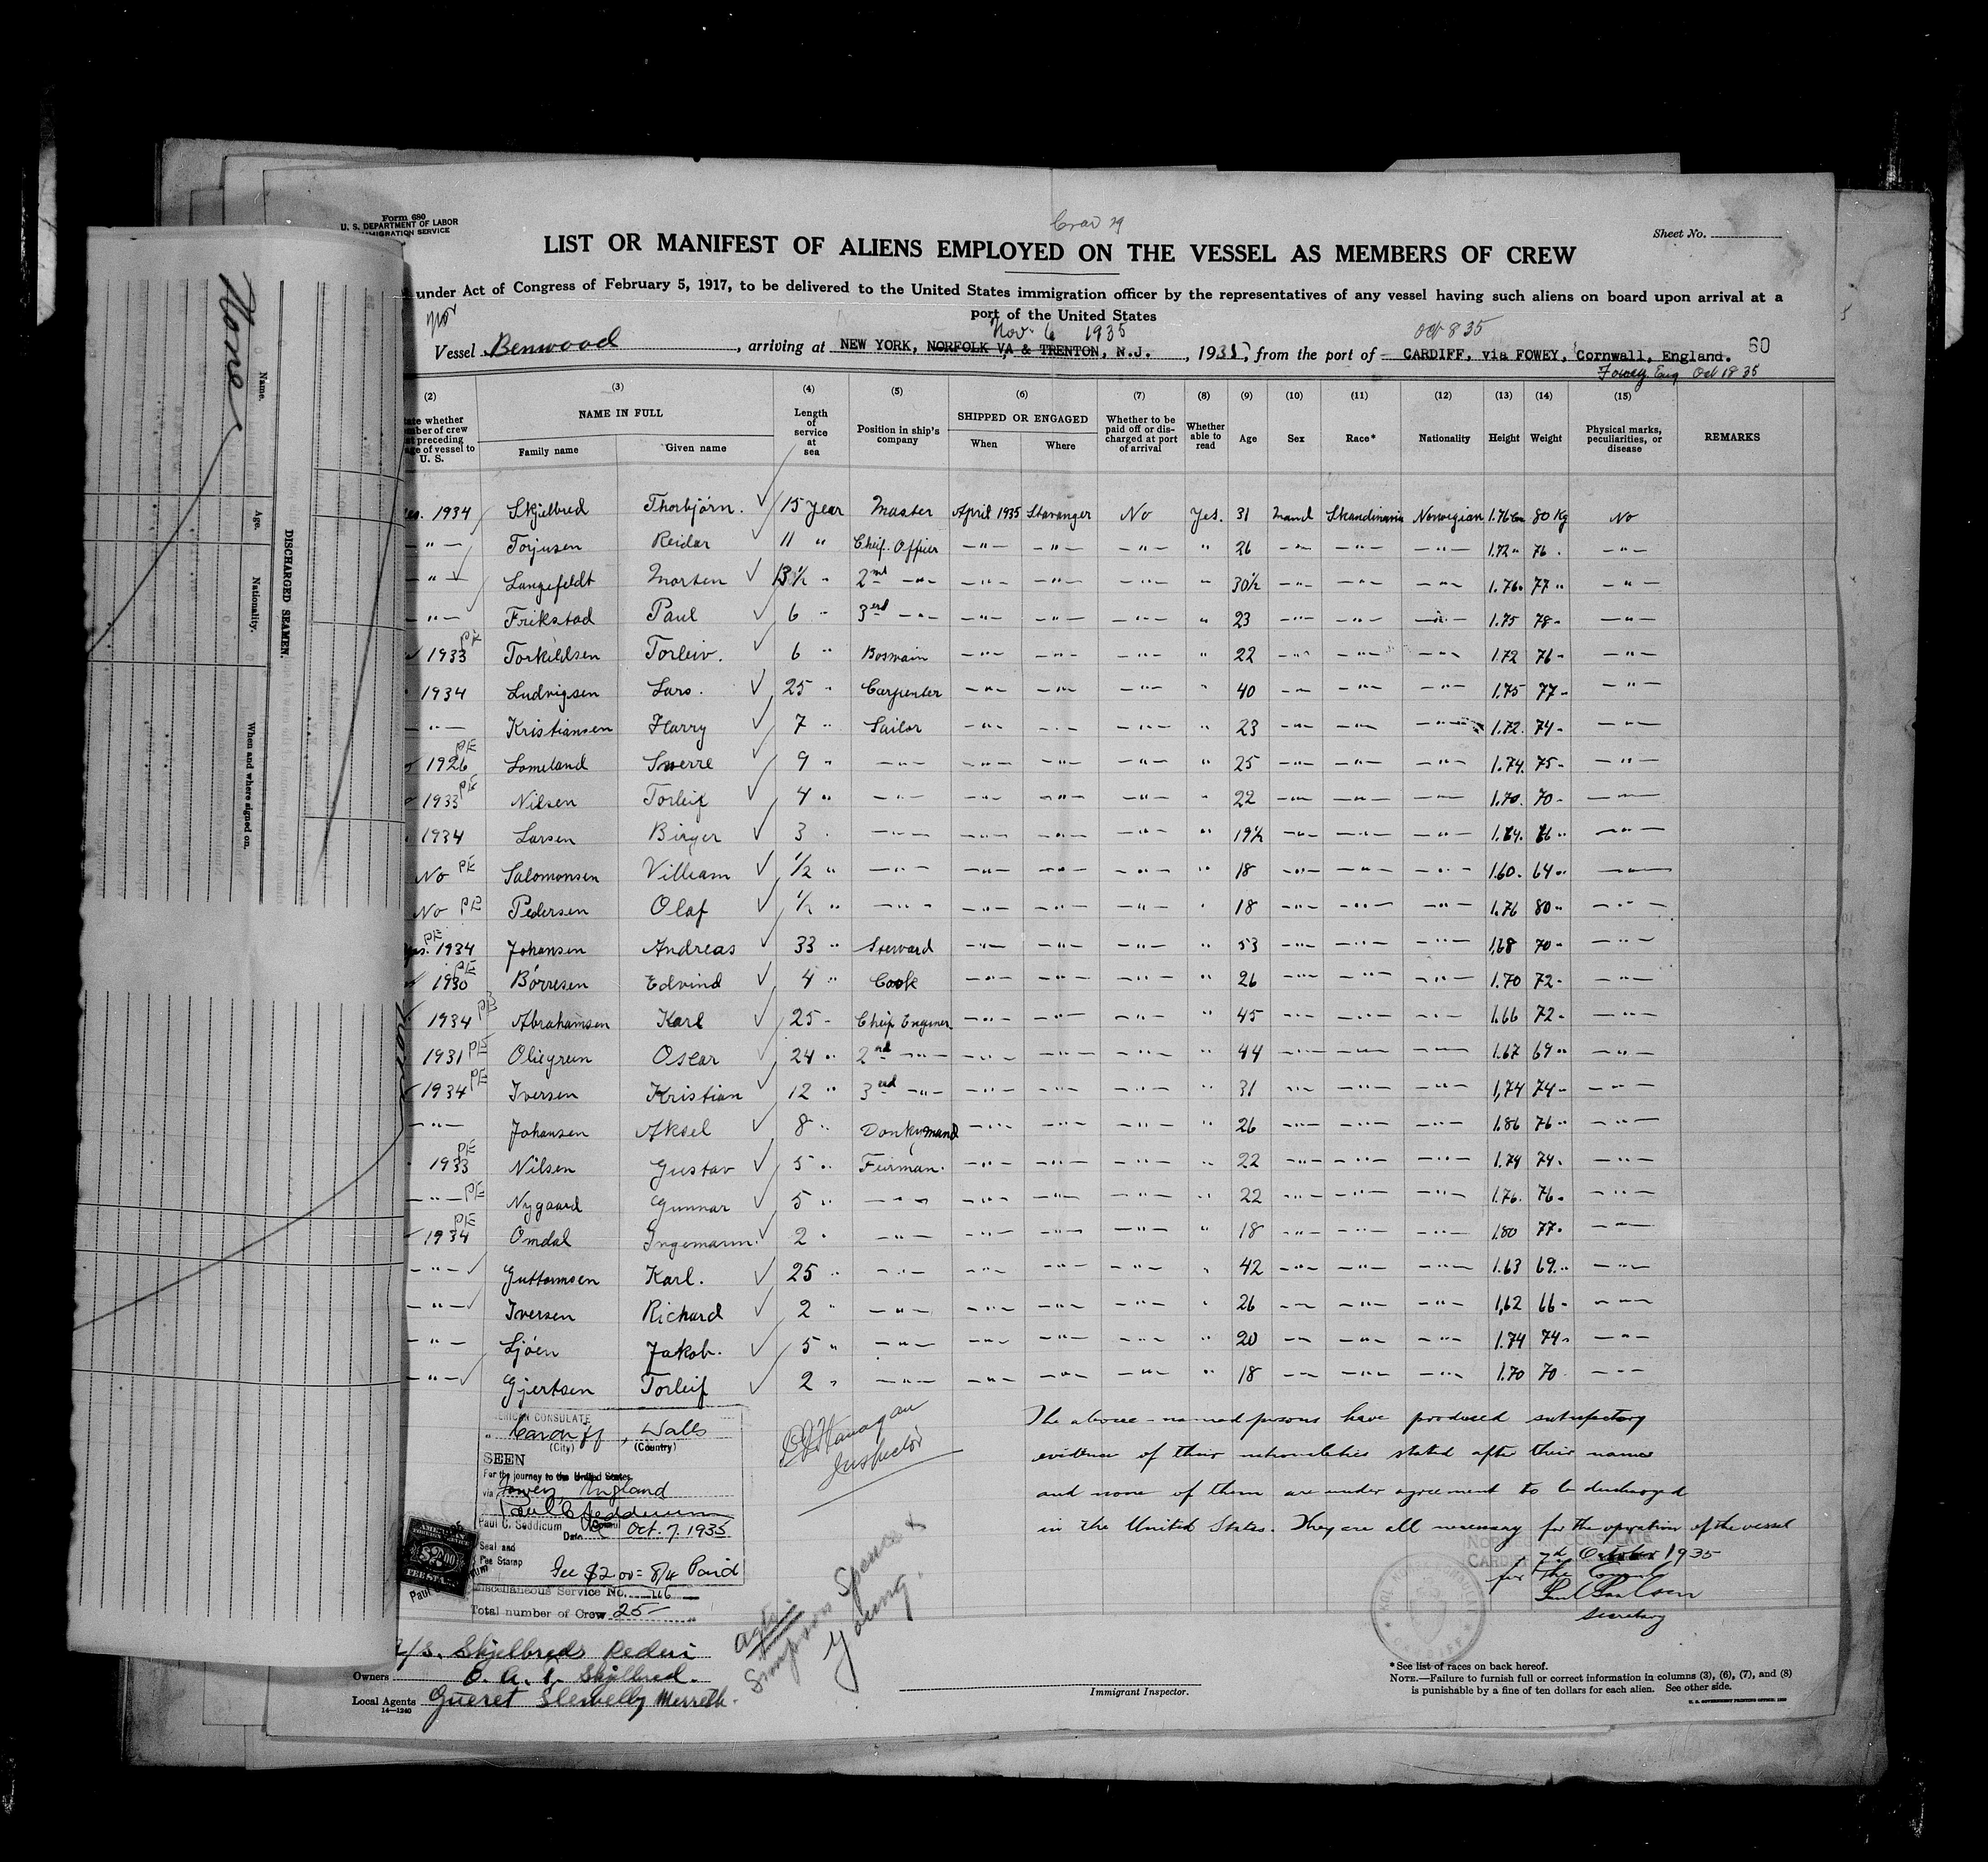 Form 680
U. S. DEPARTMENT OF LABOR
IMMIGRATION SERVICE
Sheet No.
LIST OR MANIFEST OF ALIENS EMPLOYED ON THE VESSEL AS MEMBERS OF CREW
under Act of Congress of February 5, 1917, to be delivered to the United States immigration officer by the representatives of any vessel having such aliens on board upon arrival at a
port of the United States
Nov. 6 1935
Oct 8 35
Vessel Benwood, arriving at NEW YORK, NORFOLK VA & TRENTON, N.J., 1935, from the port of CARDIFF, via FOWEY, Cornwall, England. 60
Fowey Eng Oct 18 35
(2) (3) (4) (5) (6) (7) (8) (9) (10) (11) (12) (13) (14) (15)
NAME IN FULL Family name Given name Length of service at sea Position in ship's company SHIPPED OR ENGAGED When Where Whether to be paid off or discharged at port of arrival Whether able to read Age Sex Race* Nationality Height Weight Physical marks, peculiarities, or disease REMARKS
1934 Skjelbred Thorbjørn. 15 year Master April 1935 Stavanger No Yes. 31 Mand Skandinavia Norwegian 1.76 80 Kg No
—"— Torjusen Reidar 11 " Cheif. Officer —"— —"— —"— " 26 —"— —"— —"— 1.72 76 —"—
—"— Langefeldt Morten 13½ " 2nd —"— —"— —"— —"— " 30½ —"— —"— —"— 1.76 77 " —"—
—"— Frikstad Paul 6 " 3erd —"— —"— —"— —"— " 23 —"— —"— —"— 1.75 78 —"—
1933 PE Torkildsen Torleiv. 6 " Boswain —"— —"— —"— " 22 —"— —"— —"— 1.72 76 —"—
1934 Ludvigsen Lars. 25 " Carpenter —"— —"— —"— " 40 —"— —"— —"— 1.75 77 —"—
—"— Kristiansen Harry 7 " Sailor —"— —"— —"— " 23 —"— —"— —"— 1.72 74 —"—
1926 PE Lomeland Sverre 9 " —"— —"— —"— —"— " 25 —"— —"— —"— 1.74 75 —"—
1933 PE Nilsen Torleif 4 " —"— —"— —"— —"— " 22 —"— —"— —"— 1.70 70 —"—
1934 Larsen Birger 3 " —"— —"— —"— —"— " 19½ —"— —"— —"— —"—
No PE Salomonsen Villiam ½ " —"— —"— —"— —"— " 18 —"— —"— —"— 1.60 64 —"—
No PE Pedersen Olaf ½ " —"— —"— —"— —"— " 18 —"— —"— —"— 1.76 80 —"—
yes. PE 1934 Johansen Andreas 33 " Steward —"— —"— —"— " 53 —"— —"— —"— 1.68 70 —"—
1930 PE Børresen Edvind 4 " Cook —"— —"— —"— " 26 —"— —"— —"— 1.70 72 —"—
1934 PE Abrahamsen Karl 25 " Cheif Enginer —"— —"— —"— " 45 —"— —"— —"— 1.66 72 —"—
1931 PE Oliegreen Oscar 24 " 2nd —"— —"— —"— —"— " 44 —"— —"— —"— 1.67 69 " —"—
1934 PE Iversen Kristian 12 " 3erd —"— —"— —"— —"— " 31 —"— —"— —"— 1,74 74 —"—
—"— Johansen Aksel 8 " Donkymand —"— —"— —"— " 26 —"— —"— —"— 1.86 76 —"—
1933 PE Nilsen Gustav 5 " Feirman. —"— —"— —"— " 22 —"— —"— —"— 1.74 74 —"—
—"— PE Nygaard Gunnar 5 " —"— —"— —"— —"— " 22 —"— —"— —"— 1.76. 76 —"—
1934 PE Omdal Ingemann. 2 " —"— —"— —"— —"— " 18 —"— —"— —"— 1.80 77 —"—
—"— Guttormsen Karl. 25 " —"— —"— —"— —"— " 42 —"— —"— —"— 1.63 69 —"—
—"— Iversen Richard 2 " —"— —"— —"— —"— " 26 —"— —"— —"— 1,62 66 —"—
—"— Ljøen Jakob. 5 " —"— —"— —"— —"— " 20 —"— —"— —"— 1.74 74 —"—
—"— Gjertsen Torleif 2 " —"— —"— —"— —"— " 18 —"— —"— —"— 1.70 70 —"—
The above-named persons have produced satisfactory
evidence of their nationalities stated after their names
and none of them are under agreement to be discharged
in the United States. They are all necessary for the operation of the vessel
7th October 1935
for the Consul
secretary
AMERICAN CONSULATE
Cardiff, Wales
(City) (Country)
SEEN
For the journey to the United States
via Fowey, England
Paul C. Seddicum
Date Oct. 7. 1935
Seal and
Fee Stamp
Fee $2.00 = 8/4 Paid
Miscellaneous Service No.
Total number of Crew 25
Inspector
Agts.
Simpson Spence &
Young.
A/S. Skjelbreds Rederi
Owners O. A. T. Skjelbred.
Local Agents Gueret Llewellyn Merrett.
14—1240
Immigrant Inspector.
*See list of races on back hereof.
NOTE.—Failure to furnish full or correct information in columns (3), (6), (7), and (8)
is punishable by a fine of ten dollars for each alien. See other side.
U. S. GOVERNMENT PRINTING OFFICE
None
DISCHARGED SEAMEN.
Name. Age. Nationality. When and where signed on.